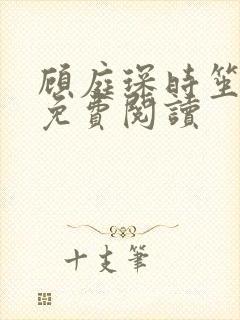 顧庭琛時笙
免費閱讀
十支筆